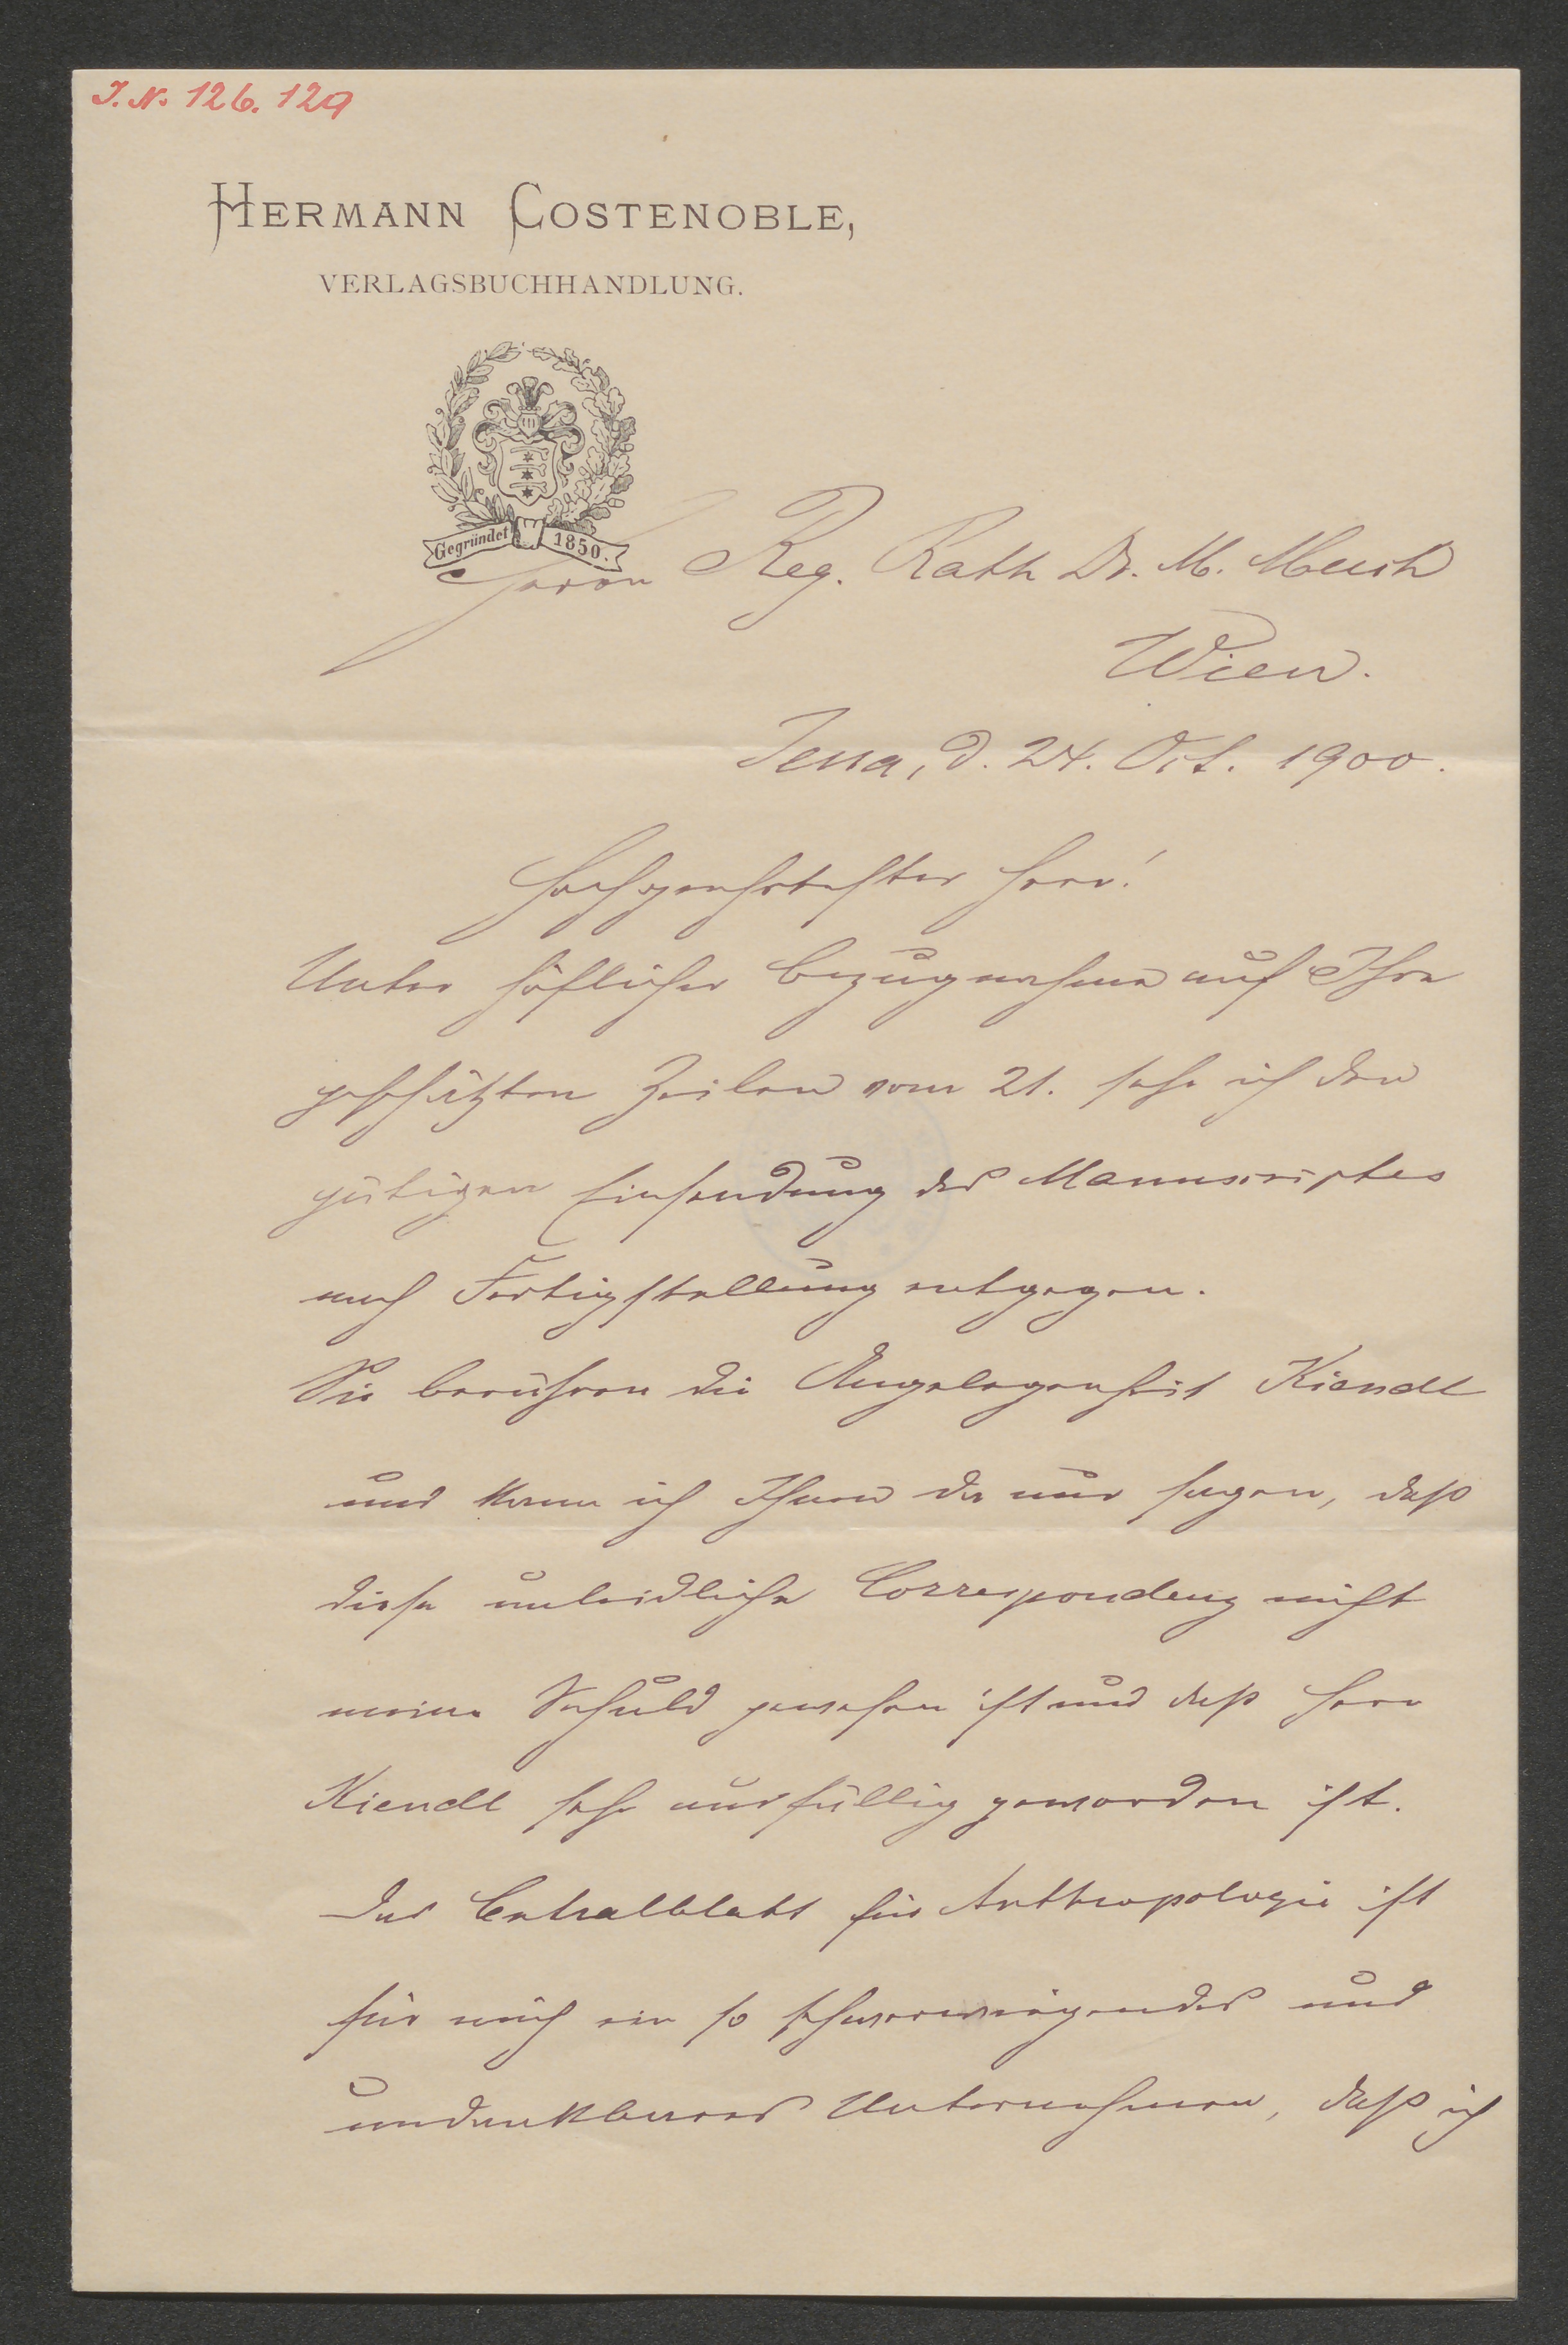 I. N. 126.129
HERMANN COSTENOBLE,
VERLAGSBUCHHANDLUNG.
Gegründet 1850.
Herrn Reg. Rath Dr. M. Much
Wien.
Jena, d. 24. Oct. 1900.
Hochgeehrtester Herr!
Unter höflicher Bezugnahme auf Ihre
geschätzten Zeilen vom 21. sehe ich der
gütigen Einsendung des Manuscriptes
nach Fertigstellung entgegen.
Sie berühren die Angelegenheit Kiendl
und kann ich Ihnen da nur sagen, daß
diese unleidliche Correspondenz nicht
meine Schuld gewesen ist und daß Herr
Kiendl sehr ausfällig geworden ist.
Das Centralblatt für Anthropologie ist
für mich ein so schwerwiegendes und
undankbares Unternehmen, daß ich